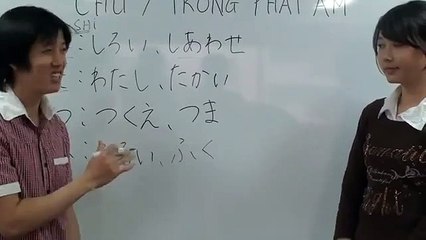 CHÚ Ý TRONG PHÁT ÂM
SHi
:しろい、しあわせ
:わたし、たかい
つ:つくえ、つま
い、ふく